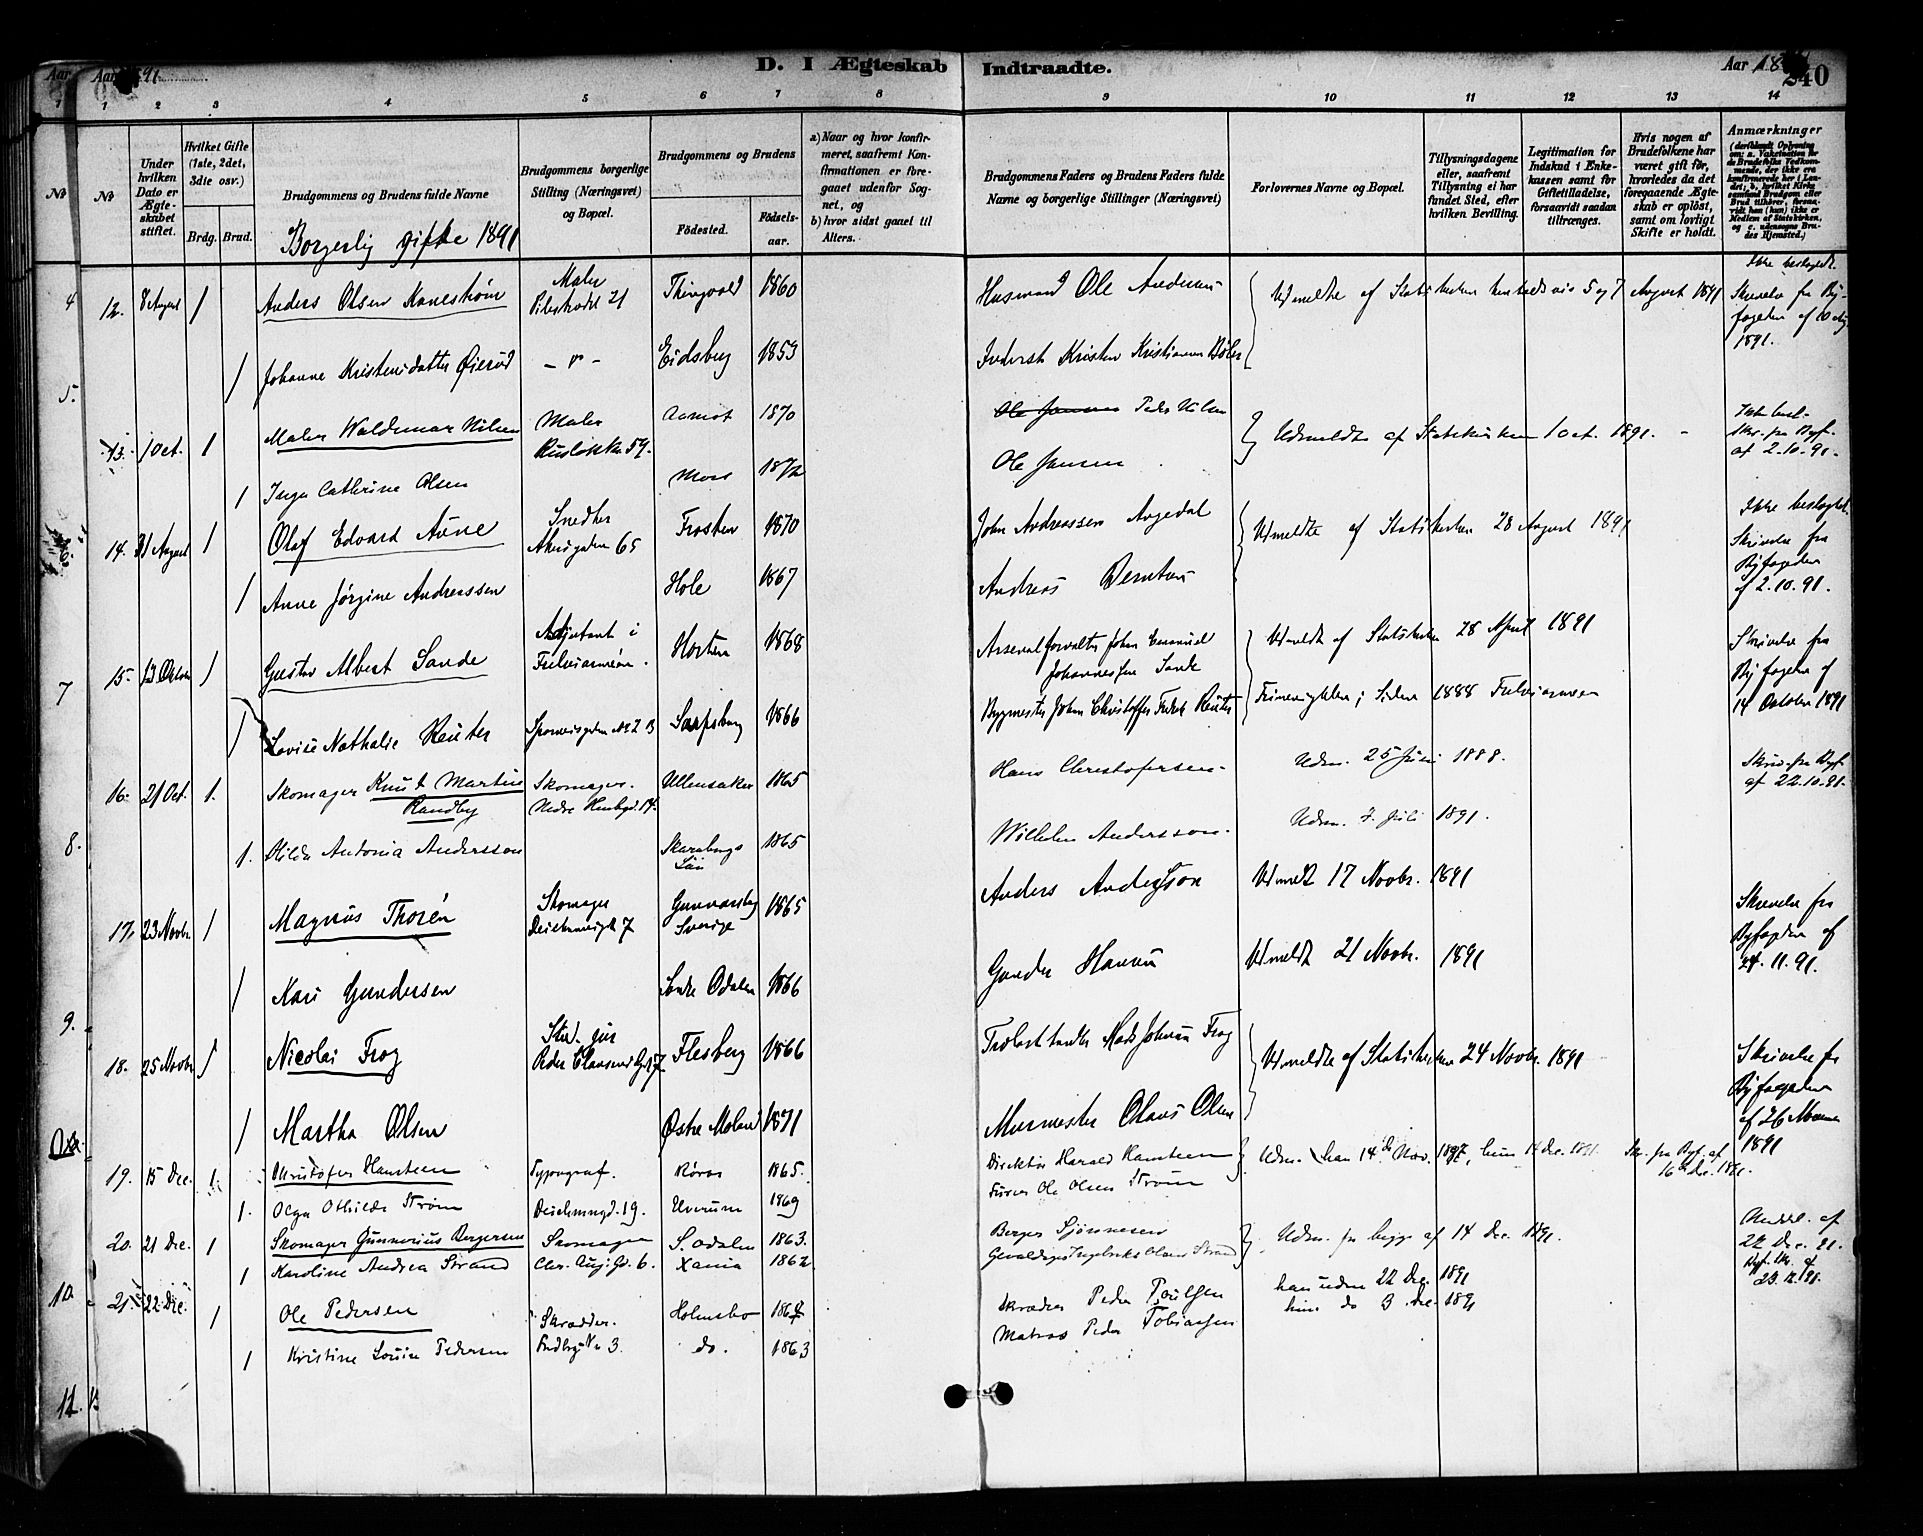 Aar 1891. D. I Ægteskab Indtraadte. Aar 1891 240
1 2 3 4 5 6 7 8 9 10 11 12 13 14
No
Under hvilken Dato er Ægteskabet stiftet.
Hvilket Gifte (1ste, 2det, 3die osv.)
Brdg. Brud.
Brudgommens og Brudens fulde Navne
Brudgommens borgerlige Stilling (Næringsvei) og Bopæl.
Brudgommens og Brudens
Födested. Födselsaar.
a) Naar og hvor konfirmeret, saafremt Konfirmationen er foregaaet udenför Sognet, og
b) hvor sidst gaaet til Alters.
Brudgommens Faders og Brudens Faders fulde Navne og borgerlige Stillinger (Næringsvei)
Forlovernes Navne og Bopæl.
Tillysningsdagene eller, saafremt Tillysning ei har fundet Sted, efter hvilken Bevilling.
Legitimation for Indskud i Enkekassen samt för Giftetilladelse, forsaavidt saadan tiltrænges.
Hvis nogen af Brudefolkene har været gift för, hvorledes da det foregaaende Ægteskab er oplöst, samt om lovligt Skifte er holdt.
Anmærkninger
Borgerlig gifte 1891
12. 8 August 1 Anders Olsen Kanestrøm Maler Pilestrædet 21 Thingvold 1860 Husmand Ole Andersen Udmeldte af Statskirken henholdsvis 5 og 7 August 1891 Ikke beslægtet. Skrivelse fra Byfogden af 10 Aug 1891.
1 Johanne Kristensdatter Øierud - " - Eidsberg 1853 Inderst Kristen Kristiansen
13. 1 Oct. 1 Maler Waldemar Nilsen Maler Ruseløkkv. 59. Aamot 1870 Ole Jansen Peder Nilsen Udmeldte af Statskirken 1 oct. 1891. Ikke besl. Skr. fra Byf. af 2.10.91.
1 Inga Cathrine Olsen Moss 1872 Ole Jansen
14. 31 August 1 Olaf Edvard Aune Snedker Akersgaden 65 Frosten 1870 John Andreassen Udmeldte af Statskirken 28 August 1891 Ikke beslægtet. Skrivelse fra Byfogden af 2.10.91.
1 Anne Jørgine Andreassen Hole 1867 Andreas Berntsen
15. 13 Octobr 1 Gustav Albert Sande Adjutant i Frelsesarmeen. Horten 1868 Arsenalforvalter Johan Emanuel Johannessen Sande Udmeldt af Statskirken 28 April 1891 Skrivelse fra Byfogden af 14 October 1891
1 Lovise Nathalie Reuter Sporveisgaden No 2 B Sarpsborg 1866 Bygmester Johan Christoffer Fredrik Reuter Frimenighden; siden 1888 Frelsesarmeen
16. 21 Oct. 1. Skomager Knut Martin Randby Skomager. Nedre 14. Ullensaker 1865 Hans Christofersen. Udm. 25 Juni 1888. Skriv. fra Byf. af 22.10.91.
1. Hilda Antonia Andersson Skaraborgs Län 1865 Wilhelm Andersson. Udm. 7. Juli 1891.
17. 23 Novbr. 1 Magnus Thorén Skomager Deichmansgd. 7 Gunnarsby Sverige 1865 Anders Andersson Udmeldt 17 Novbr. 1891 Skrivelse fra Byfogden af 24.11.91.
1 Kari Gundersen Søndre Odalen 1866 Gunder Hansen Udmeldt 21 Novbr. 1891
18. 25 Novbr 1 Nicolai Frog Stud. jur Peder Claussøns Gd 7 Flesberg 1866 Trælasthandler Mads Johnsen Frog Udmeldte af Statskirken 24 Novbr. 1891 Skrivelse fra Byfogden af 26 Novem 1891
1 Martha Olsen Østre Moland 1871 Murmester Olaus Olsen
19. 15 Dec. 1. Christofer Hansteen Typograf. Røros 1865. Direktør Harald Hansteen Udm. han 14de Nov. 1887, hun 14 Dec. 1891. Skr. fra Byf. af 16 Dec. 1891.
1. Olga Othilde Strøm Deichmansgd. 19. Elverum 1869 Ole Olsen Strøm
20. 21 Dec. 1 Skomager Gunnerius Bergersen Skomager S. Odalen 1863. Berger Udm. fra begge af 14 Dec. 1891. Meddel. af 22 Dec. 91. Byf. skr. af 23.12.91.
1 Karoline Andrea Strand Chr. Aug. Gd. 6. Xania 1862 Olsen Strand
21. 22 Dec. 1 Ole Pedersen Skrædder. Holmsbo Skrædder Peder Poulsen han udm 22 Dec. 1891
1 Kristine Louise Pedersen 3. do. 1863 Matros Peder Tobiassen hun do 3 Dec. 1891
4
5.
6.
7
8.
9.
10.
11.